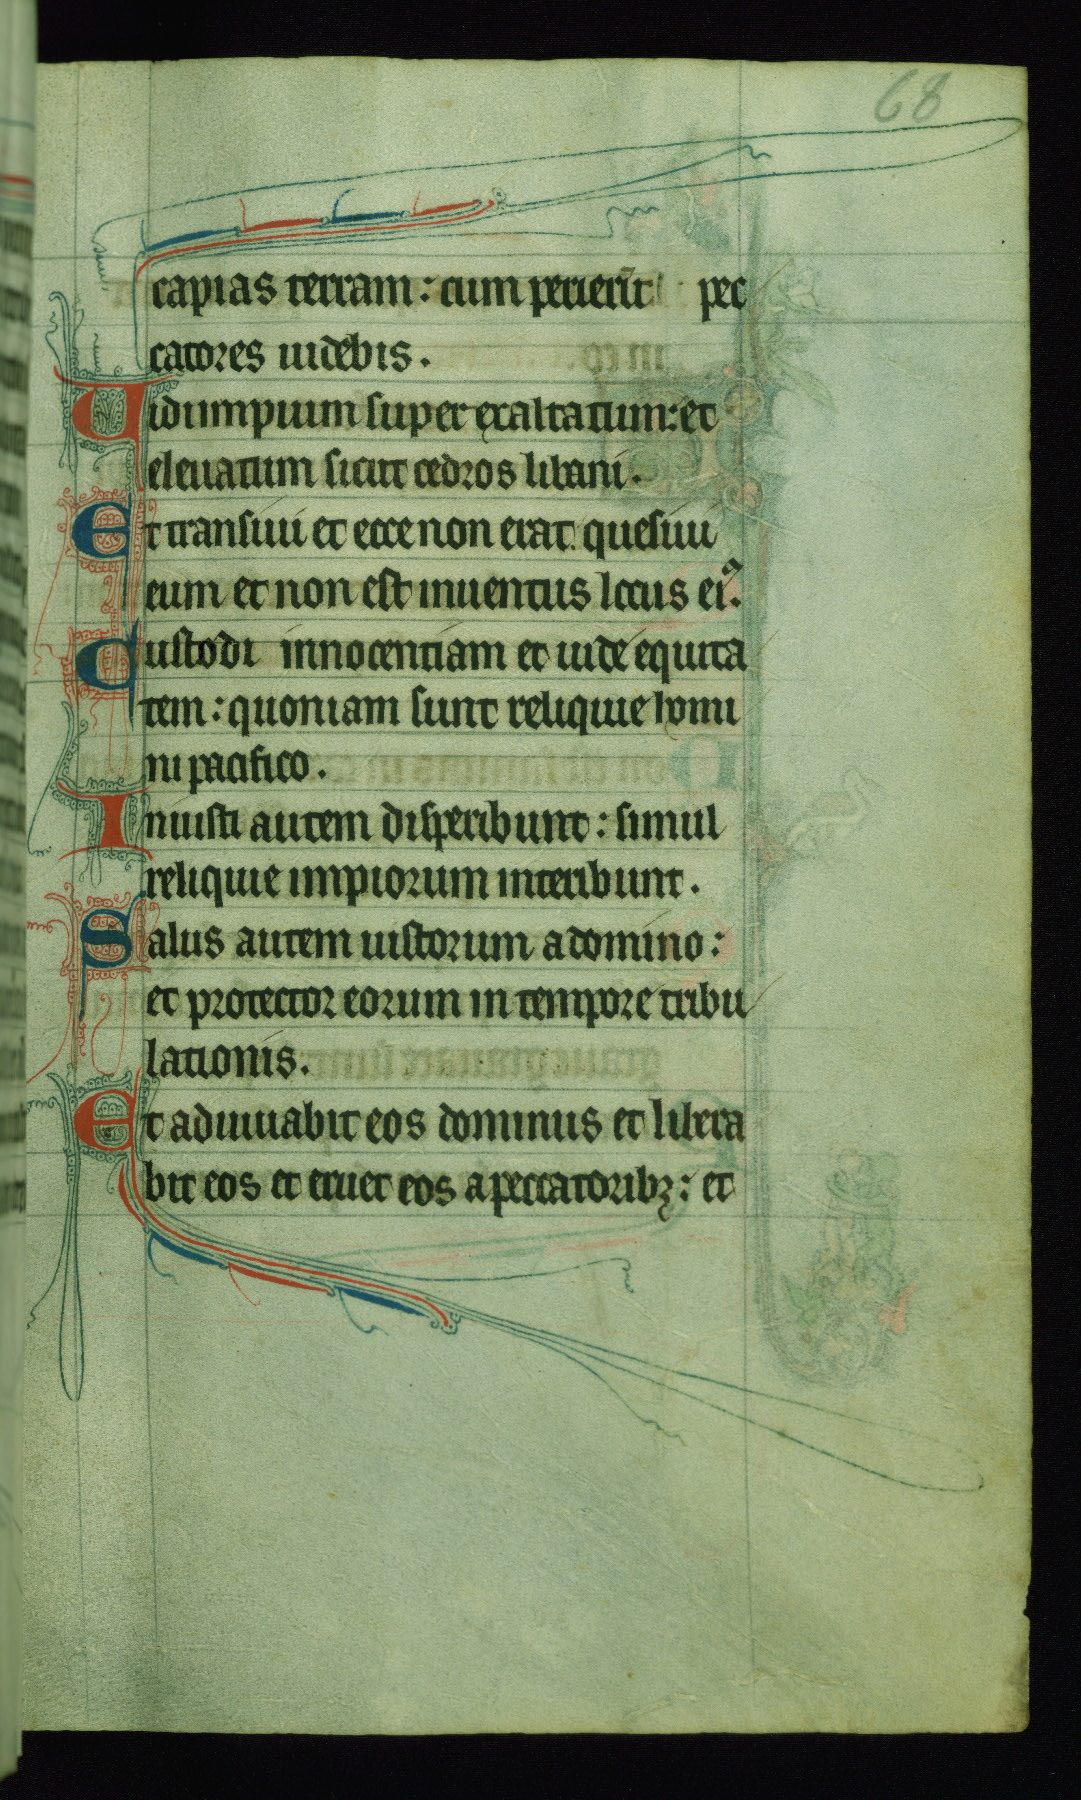 68
capias terram: cum perierīt pec
catores uidebis.
Vidi impium super exaltatum: et
eleuatum sicut cedros libani.
Et transiui et ecce non erat quesiui
eum et non est inuentus locus eiꝰ.
Custodi innocentiam et uide equita
tem: quoniam sunt reliquie homi
ni pacifico.
Iniusti autem disperibunt: simul
reliquie impiorum interibunt.
Salus autem iustorum a domino:
et protector eorum in tempore tribu
lationis.
Et adiuuabit eos dominus et libera
bit eos et eruet eos a peccatoribꝫ: et